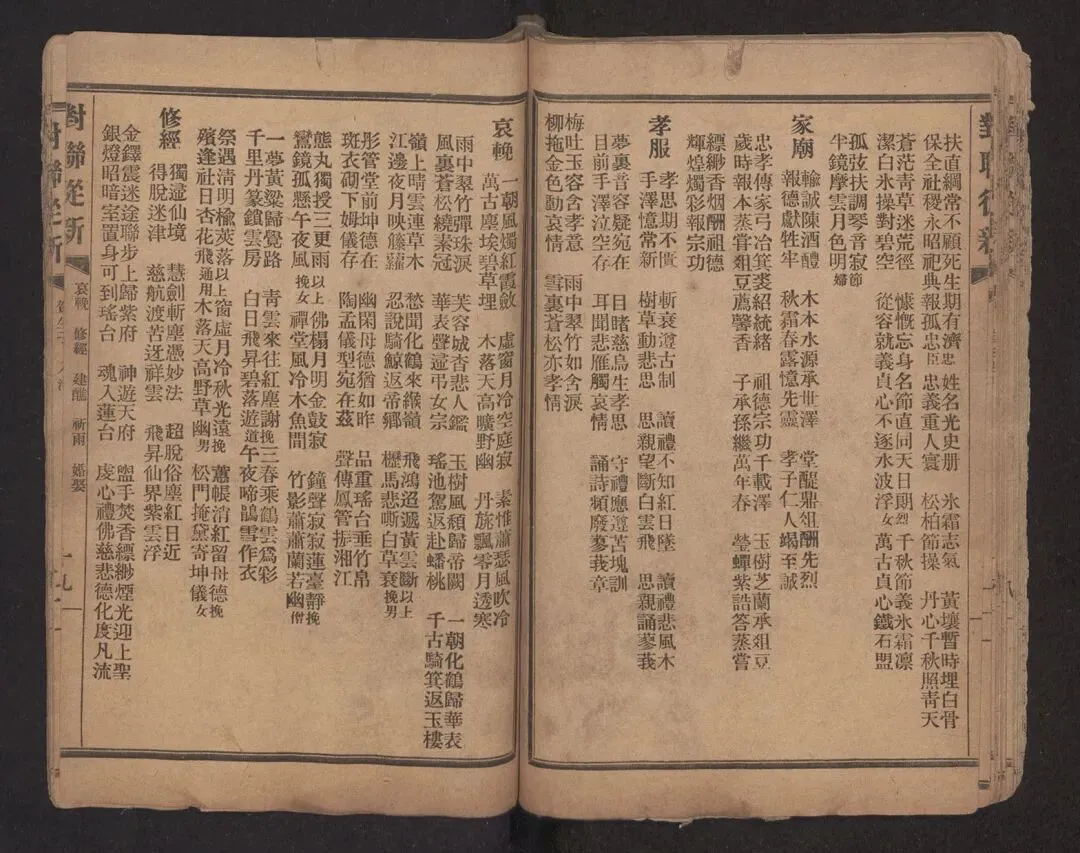 扶直綱常不顧死生期有濟忠　姓名光史册　氷霜志氣　黃壤暫時埋白骨
保全社稷永昭祀典報孤忠臣　忠義重人寰　松柏節操　丹心千秋照靑天
蒼茫靑草迷荒徑　慷慨忘身名節直同天日朗烈　千秋節義氷霜凛
潔白氷操對碧空　從容就義貞心不逐水波浮女　萬古貞心鐵石盟
孤弦扶調琴音寂節
半鏡摩雲月色明婦
家廟
輸誠陳酒醴　木本水源承世澤　堂醍鼎俎酬先烈
報德獻牲牢　秋霜春露憶先靈　孝子仁人竭至誠
忠孝傳家弓冶箕裘紹統緒　祖德宗功千載澤　玉樹芝蘭承俎豆
歲時報本蒸嘗俎豆薦馨香　子承孫繼萬年春　瑩蟬紫誥答蒸嘗
縹緲香烟酬祖德
輝煌燭彩報宗功
孝服
孝思期不匱　斬衰遵古制　讀禮不知紅日墜　讀禮悲風木
手澤憶常新　樹草動悲思　思親望斷白雲飛　思親誦蓼莪
夢裏音容疑宛在　目睹慈烏生孝思　守禮應遵苫塊訓
目前手澤泣空存　耳聞悲雁觸哀情　誦詩頻廢蓼莪章
梅吐玉容含孝意　雨中翠竹如含淚
柳拖金色動哀情　雪裏蒼松亦孝情
對聯從新
哀輓　修經　建醮　祈雨　婚娶
哀輓
一朝風燭紅霞斂　虛窗月冷空庭寂　素惟蕭瑟風吹冷
萬古塵埃碧草埋　木落天高曠野幽　丹旐飄零月透寒
雨中翠竹彈珠淚　芙容城杳悲人鑑　玉樹風頹歸帝闕　一朝化鶴歸華表
風裏蒼松繞素冠　華表聲遥弔女宗　瑤池駕返赴蟠桃　千古騎箕返玉樓
嶺上晴雲連草木　愁聞化鶴來緱嶺　飛鴻迢遞黃雲斷以上
江邊夜月映藤蘿　忍說騎鯨返帝鄉　櫪馬悲嘶白草衰挽男
彤管堂前坤德在　幽閑母德猶如昨　品重瑤台垂竹帛
斑衣砌下姆儀存　陶孟儀型宛在茲　聲傳鳳管振湘江
熊丸獨授三更雨以上　佛榻月明金鼓寂　鐘聲寂寂蓮臺靜挽
鸞鏡孤懸午夜風挽女　禪堂風冷木魚間　竹影蕭蕭蘭若幽僧
一夢黃粱歸覺路　靑雲來往紅塵謝挽　三春乘鶴雲爲彩
千里丹篆鎖雲房　白日飛昇碧落遊道　午夜啼鵑雪作衣
祭遇淸明楡莢落以上　窗虛月冷秋光遠挽　蕙帳消紅留母德挽
殯逢社日杏花飛通用　木落天高野草幽男　松門掩黛寄坤儀女
修經
獨邊仙境　慧劍斬塵憑妙法　超脫俗塵紅日近
得脫迷津　慈航渡苦迓祥雲　飛昇仙界紫雲浮
金鐸震迷途聯步上歸紫府　神遊天府　盥手焚香縹緲煙光迎上聖
銀燈昭暗室置身可到瑤台　魂入蓮台　虔心禮佛慈悲德化度凡流